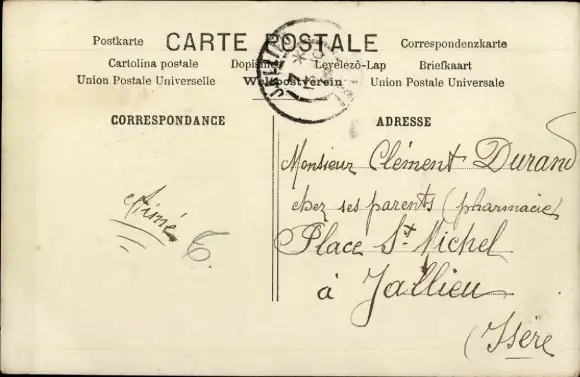 Postkarte CARTE POSTALE Correspondenzkarte
Cartolina postale Dopisnice Levelezö-Lap Briefkaart
Union Postale Universelle Weltpostverein Union Postale Universale
JALLIEU
CORRESPONDANCE
ADRESSE
Aimé
Monsieur Clément Durand
chez ses parents (pharmacie)
Place St Michel
à Jallieu
(Isère